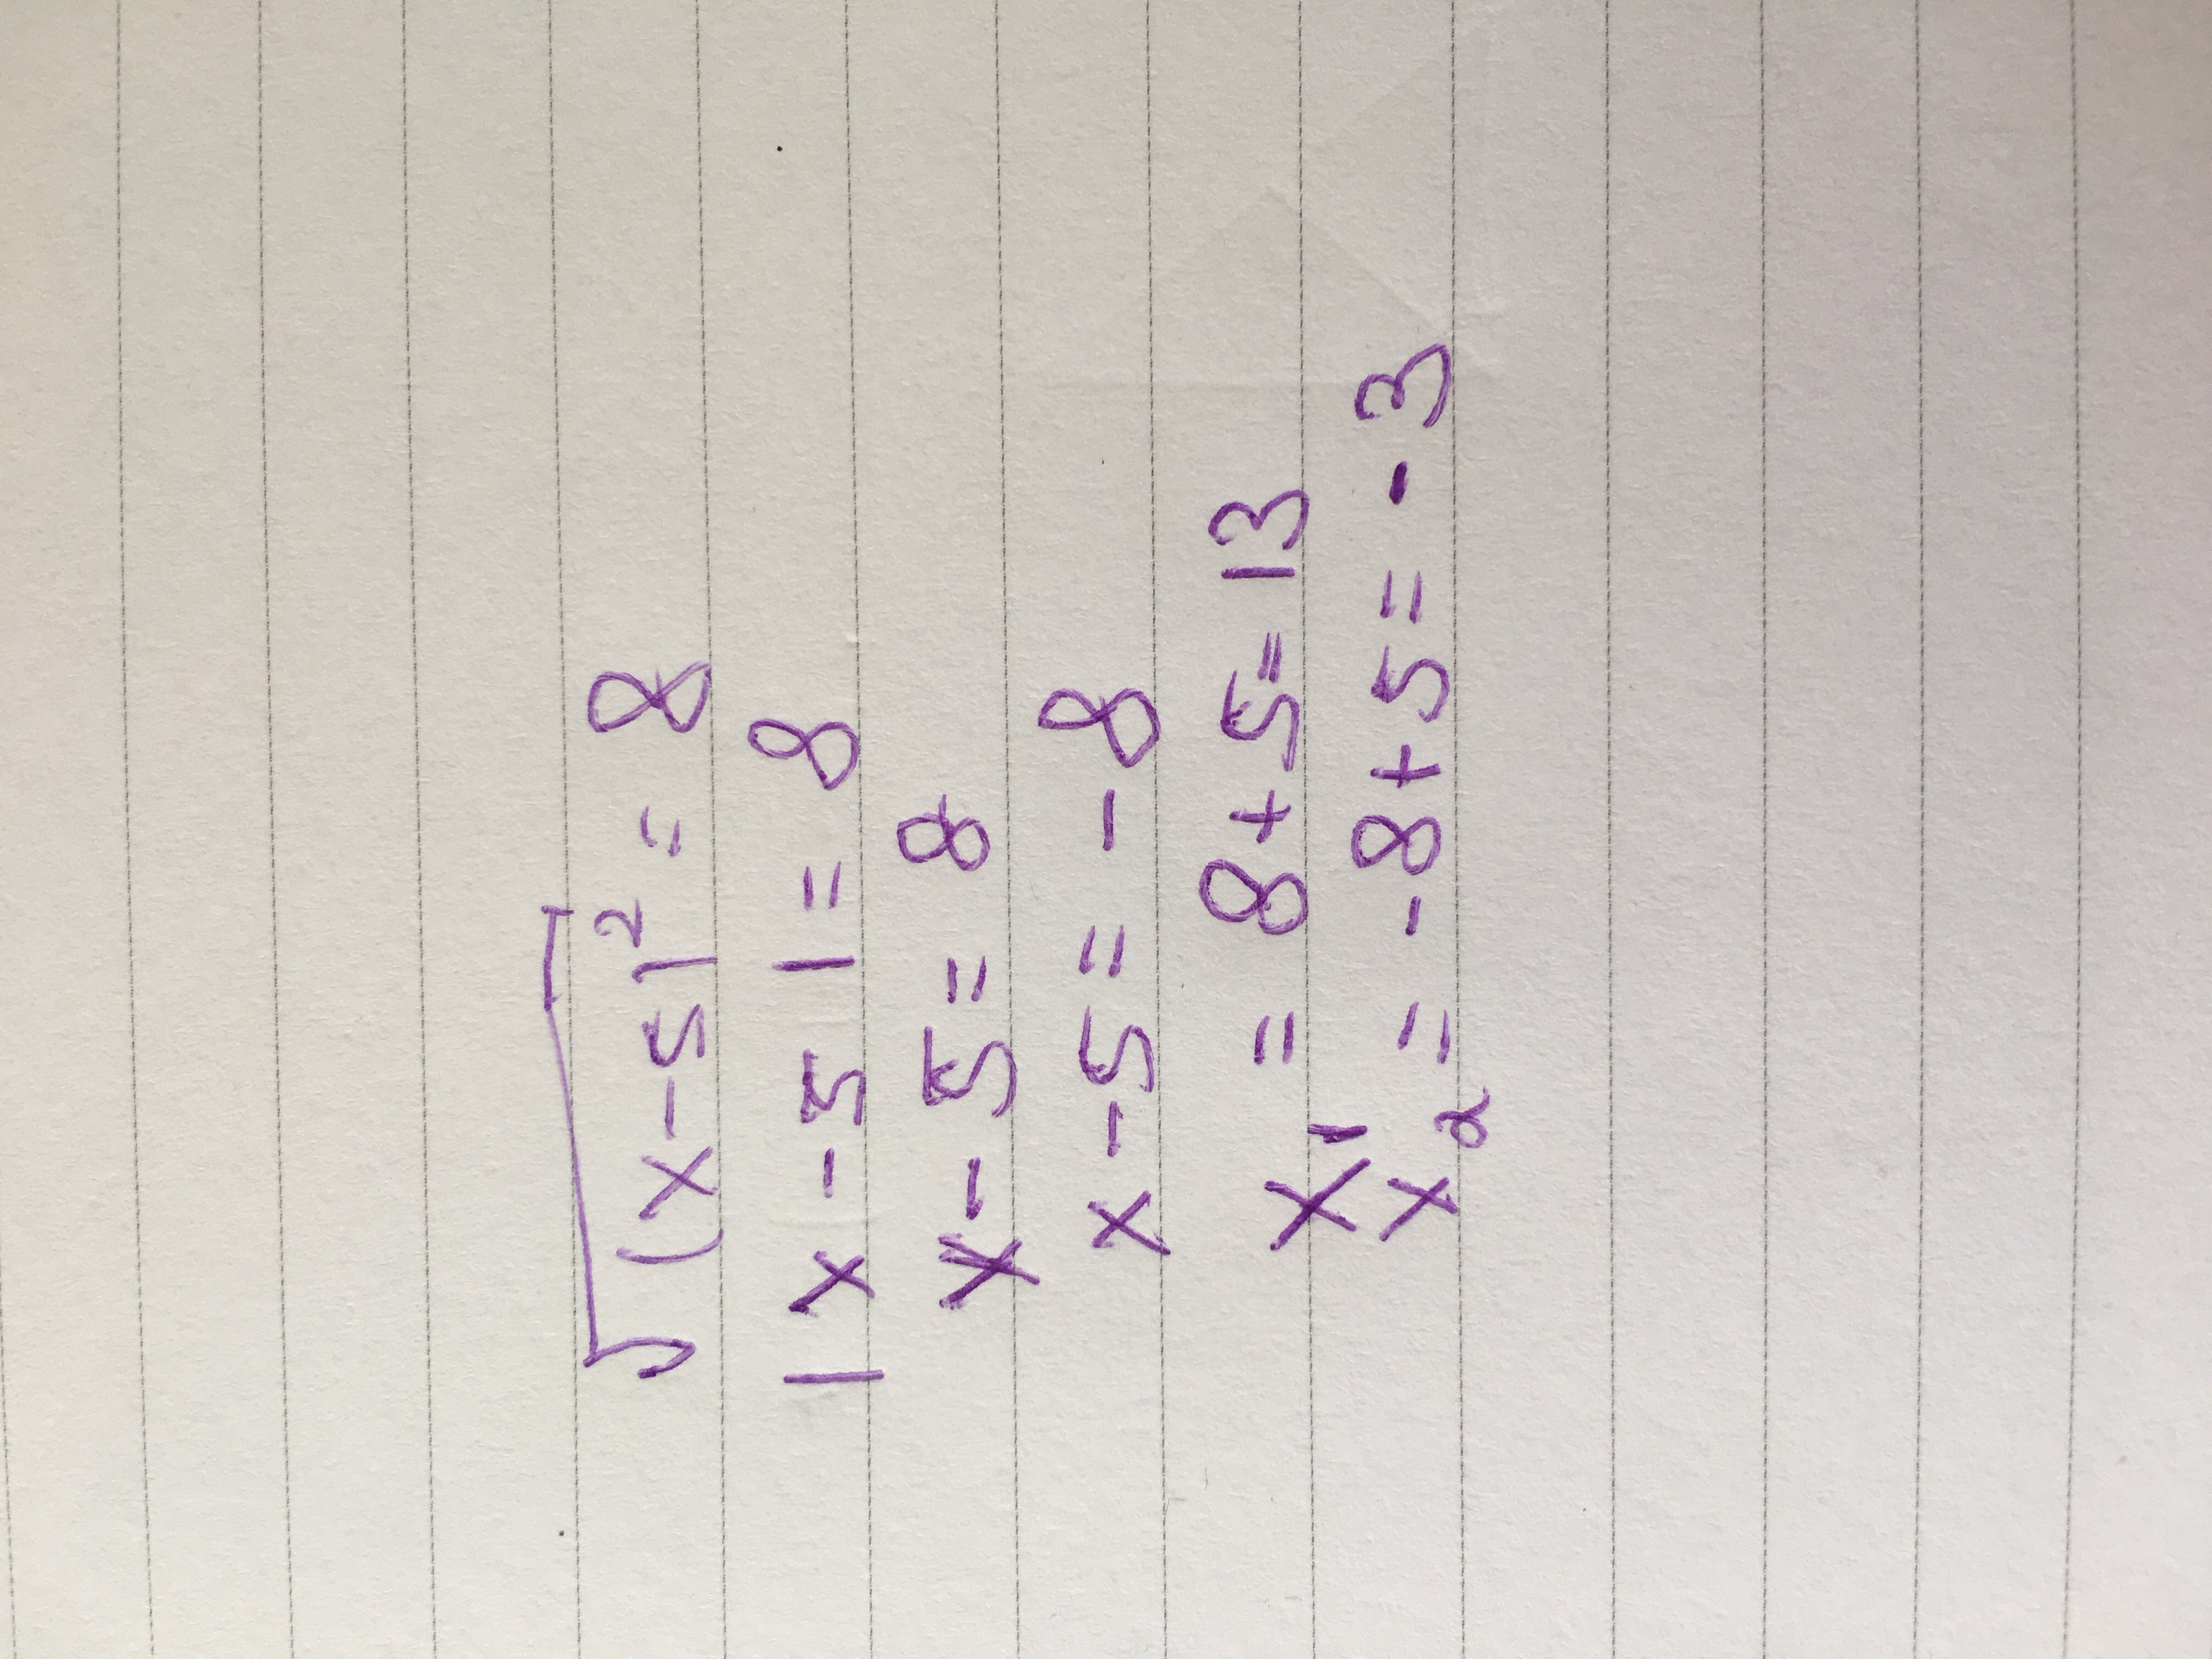 √(x-5)² = 8
|x-5| = 8
x-5 = 8
x-5 = -8
x₁ = 8+5 = 13
x₂ = -8+5 = -3